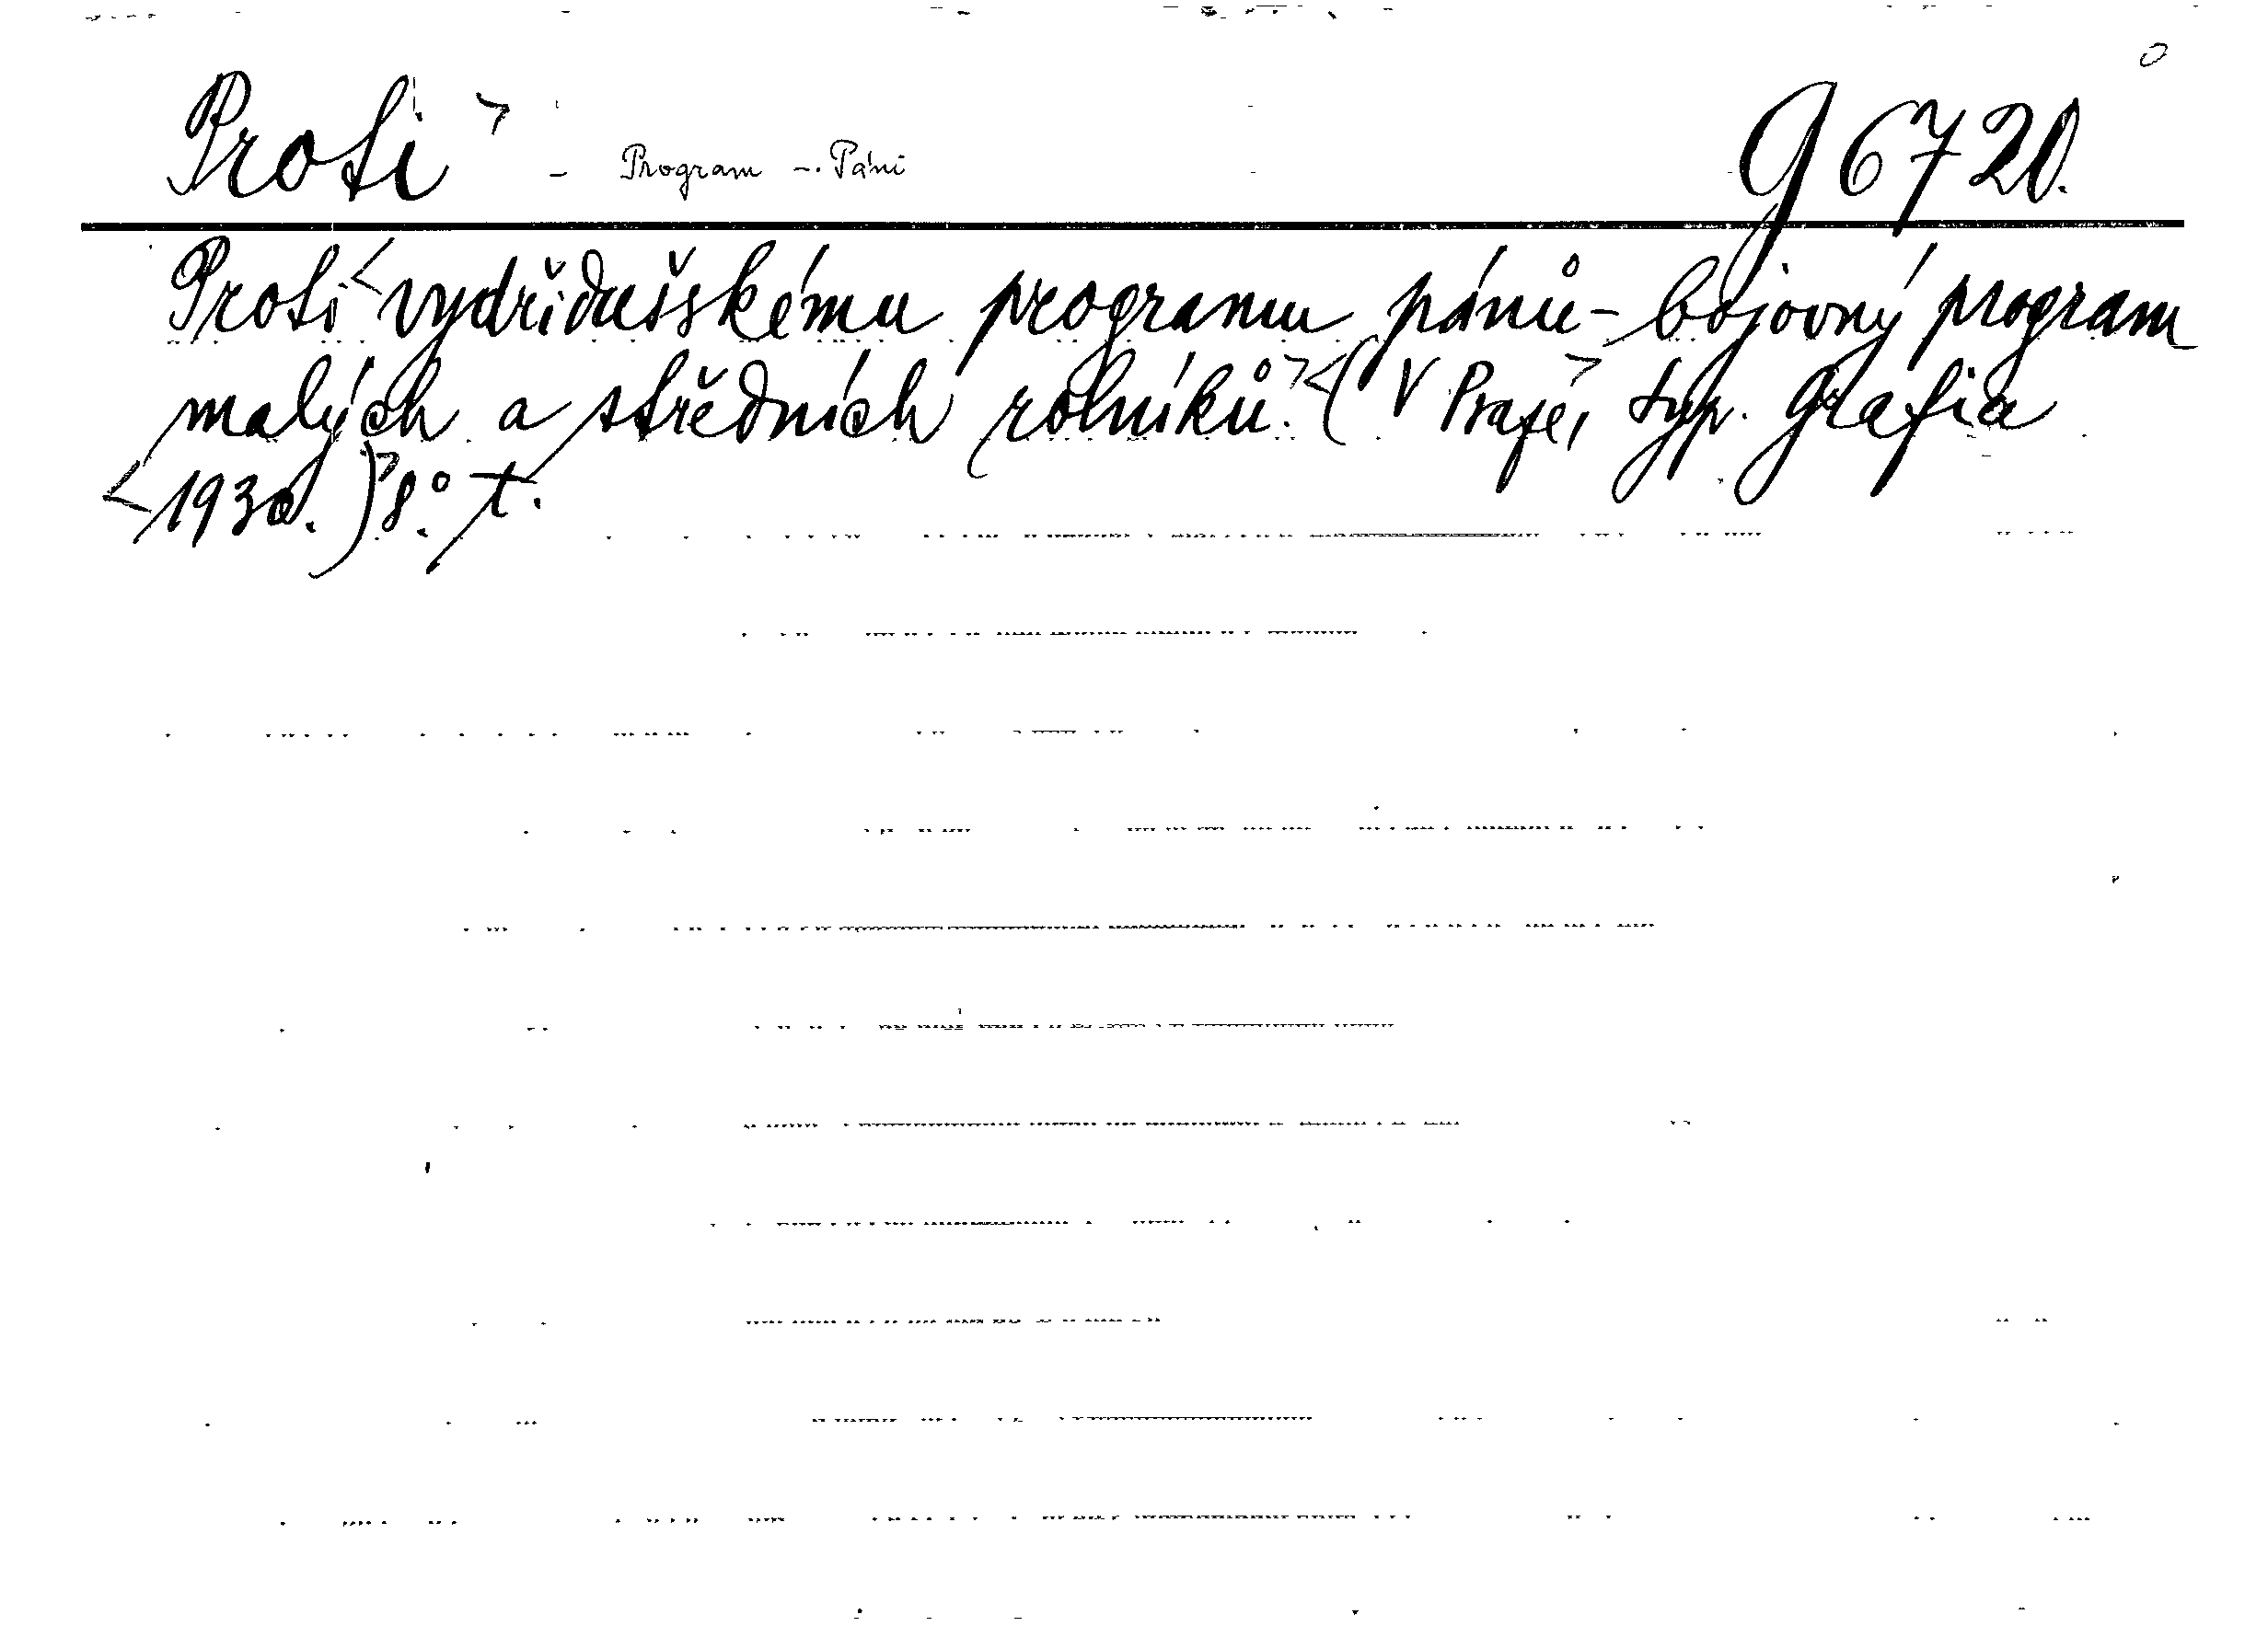 Proti > - Program - Páni g 6720.
Proti < vydřidušskému programu pánů - bojovný program
malých a středních rolníků. > < ( V Praze, > typ. Grafia
< 1930. ) > 8.° t.